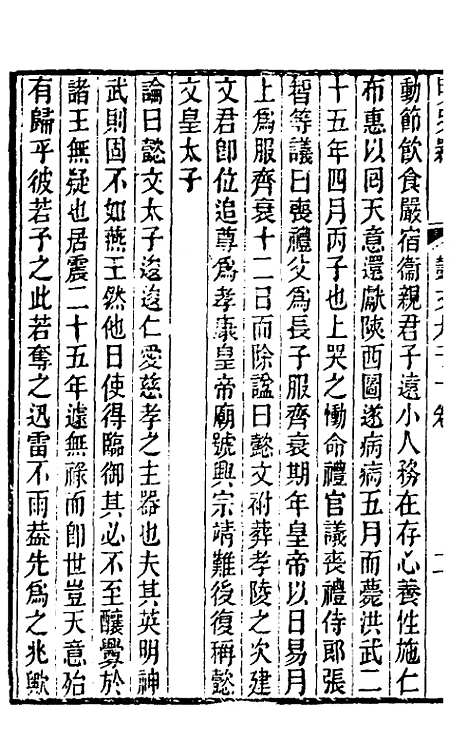 動節飲食嚴宿衞親君子遠小人務在存心養性施仁
布惠以囘天意還獻陝西圖遂病病五月而薨洪武二
十五年四月丙子也上哭之慟命禮官議喪禮侍郎張
智等議曰喪禮父爲長子服齊衰期年皇帝以日易月
上爲服齊衰十二日而除諡曰懿文祔葬孝陵之次建
文君卽位追尊爲孝康皇帝廟號興宗靖難後復稱懿
文皇太子
論曰懿文太子逡逡仁愛慈孝之主器也夫其英明神
武則固不如燕王然他日使得臨御其必不至釀釁於
諸王無疑也居震二十五年遽無祿而卽世豈天意殆
有歸乎彼若予之此若奪之迅雷不雨葢先爲之兆歟